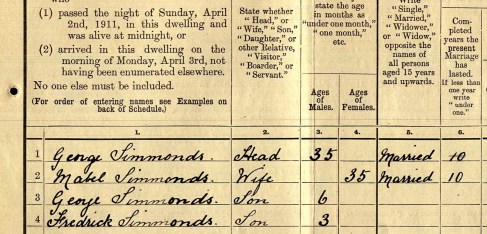 who
(1) passed the night of Sunday, April
2nd, 1911, in this dwelling and
was alive at midnight, or
(2) arrived in this dwelling on the
morning of Monday, April 3rd, not
having been enumerated elsewhere.
No one else must be included.
(For order of entering names see Examples on
back of Schedule.)
State whether
"Head," or
"Wife," "Son,"
"Daughter," or
other Relative,
"Visitor,"
"Boarder," or
"Servant."
state the age
in months as
"under one month,"
"one month,"
etc.
Ages
of
Males.
Ages
of
Females.
Write
"Single,"
"Married,"
"Widower,"
or "Widow,"
opposite the
names of
all persons
aged 15 years
and upwards.
Com-
pleted
years the
present
Marriage
has
lasted.
If less than
one year
write
"under
one."
1. 2. 3. 4. 5. 6.
1 George Simmonds. Head 35 Married 10
2 Mabel Simmonds. Wife 35 Married 10
3 George Simmonds. Son 6
4 Fredrick Simmonds. Son 3